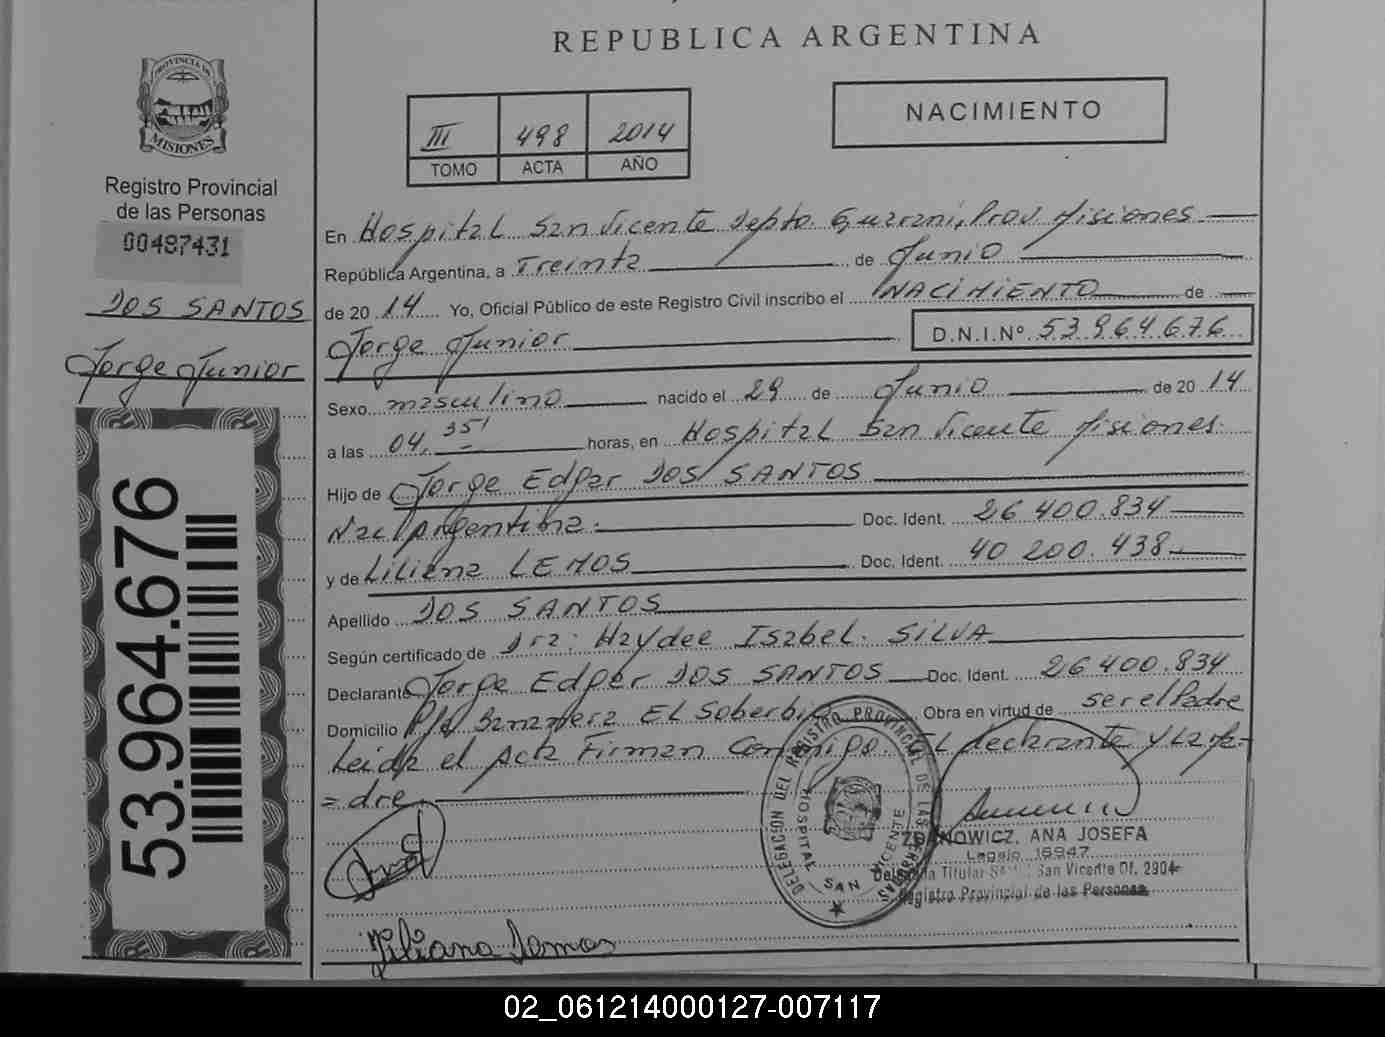 REPUBLICA ARGENTINA
PROVINCIA DE
MISIONES
Registro Provincial
de las Personas
00487431
DOS SANTOS
Jorge Junior
53.964.676
III 498 2014
TOMO ACTA AÑO
NACIMIENTO
En Hospital San Vicente Depto Guarani, Prov Misiones
República Argentina, a Treinta de Junio
de 2014 Yo, Oficial Público de este Registro Civil inscribo el NACIMIENTO de
Jorge Junior D.N.I.Nº 53.964.676
Sexo masculino nacido el 29 de Junio de 2014
a las 04,35' horas, en Hospital San Vicente Misiones.
Hijo de Jorge Edgar DOS SANTOS
Nac Argentina. Doc. Ident. 26 400.834
y de Liliana LEMOS Doc. Ident. 40 200.438
Apellido DOS SANTOS
Según certificado de Dra: Haydee Isabel. SILVA
Declarante Jorge Edgar DOS SANTOS Doc. Ident. 26400.834
Domicilio Bananera El Soberbio Obra en virtud de ser el Padre
Leida el Acta Firman Conmigo. El declarante y La Ma-
=dre
DELEGACION DEL REGISTRO PROVINCIAL DE LAS PERSONAS
HOSPITAL SAN VICENTE
ZDANOWICZ, ANA JOSEFA
Legajo 16947
Titular San Vicente Of. 2904
Registro Provincial de las Personas
Liliana Lemos
02_061214000127-007117